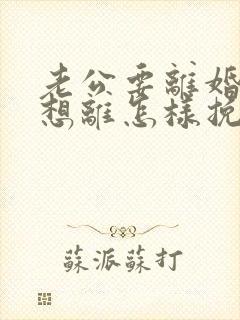 老公要離婚
想離怎樣挽
蘇派蘇打